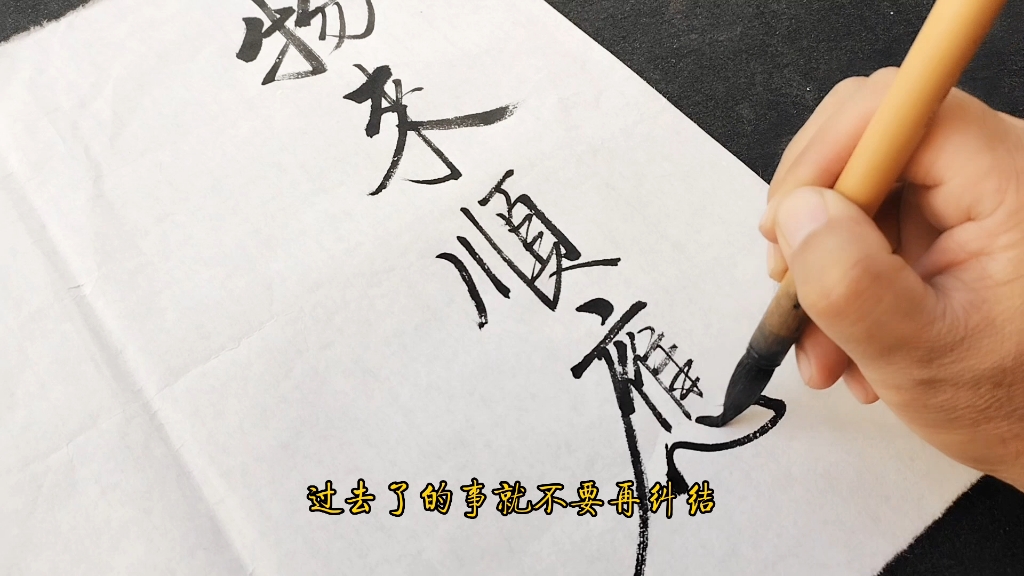 物来順應
过去了的事就不要再纠结